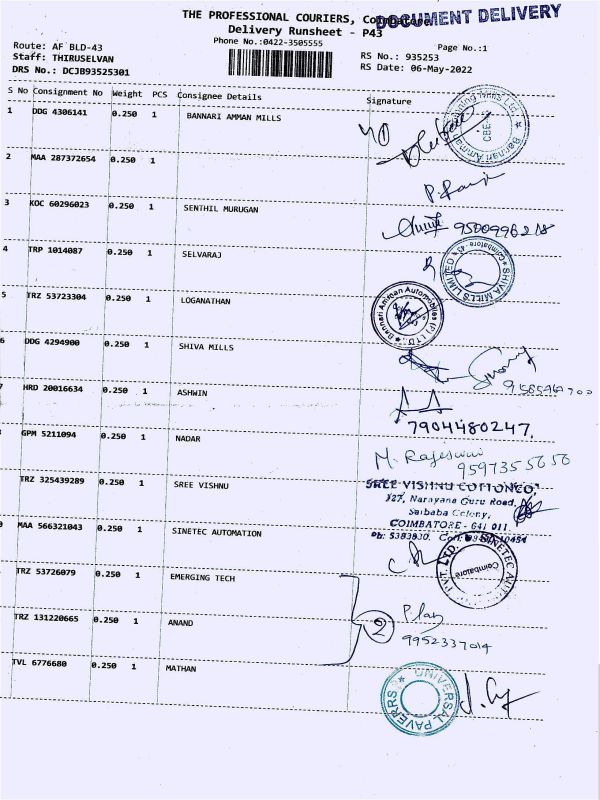 THE PROFESSIONAL COURIERS, Coimbatore
DOCUMENT DELIVERY
Delivery Runsheet - P43
Phone No.:0422-3505555
Page No.:1
Route: AF BLD-43
Staff: THIRUSELVAN
RS No.: 935253
DRS No.: DCJB93525301
RS Date: 06-May-2022
S No Consignment No Weight PCS Consignee Details Signature
1 DDG 4306141 0.250 1 BANNARI AMMAN MILLS
2 MAA 287372654 0.250 1
3 KOC 60296023 0.250 1 SENTHIL MURUGAN
4 TRP 1014087 0.250 1 SELVARAJ
SHIVA MILLS LIMITED Coimbatore - 43
5 TRZ 53723304 0.250 1 LOGANATHAN
Bannari Amman Automobiles (P) LTD.
6 DDG 4294900 0.250 1 SHIVA MILLS
7 HRD 20016634 0.250 1 ASHWIN
7904480247
GPM 5211094 0.250 1 NADAR
M. Rajeswari
9597355656
TRZ 325439289 0.250 1 SREE VISHNU
SREE VISHNU COTTONCO
127, Narayana Guru Road,
Saibaba Colony,
COIMBATORE - 641 011
0 MAA 566321043 0.250 1 SINETEC AUTOMATION
Coimbatore
TRZ 53726079 0.250 1 EMERGING TECH
2
TRZ 131220665 0.250 1 ANAND
9952337014
TVL 6776680 0.250 1 MATHAN
UNIVERSAL PAVERRS